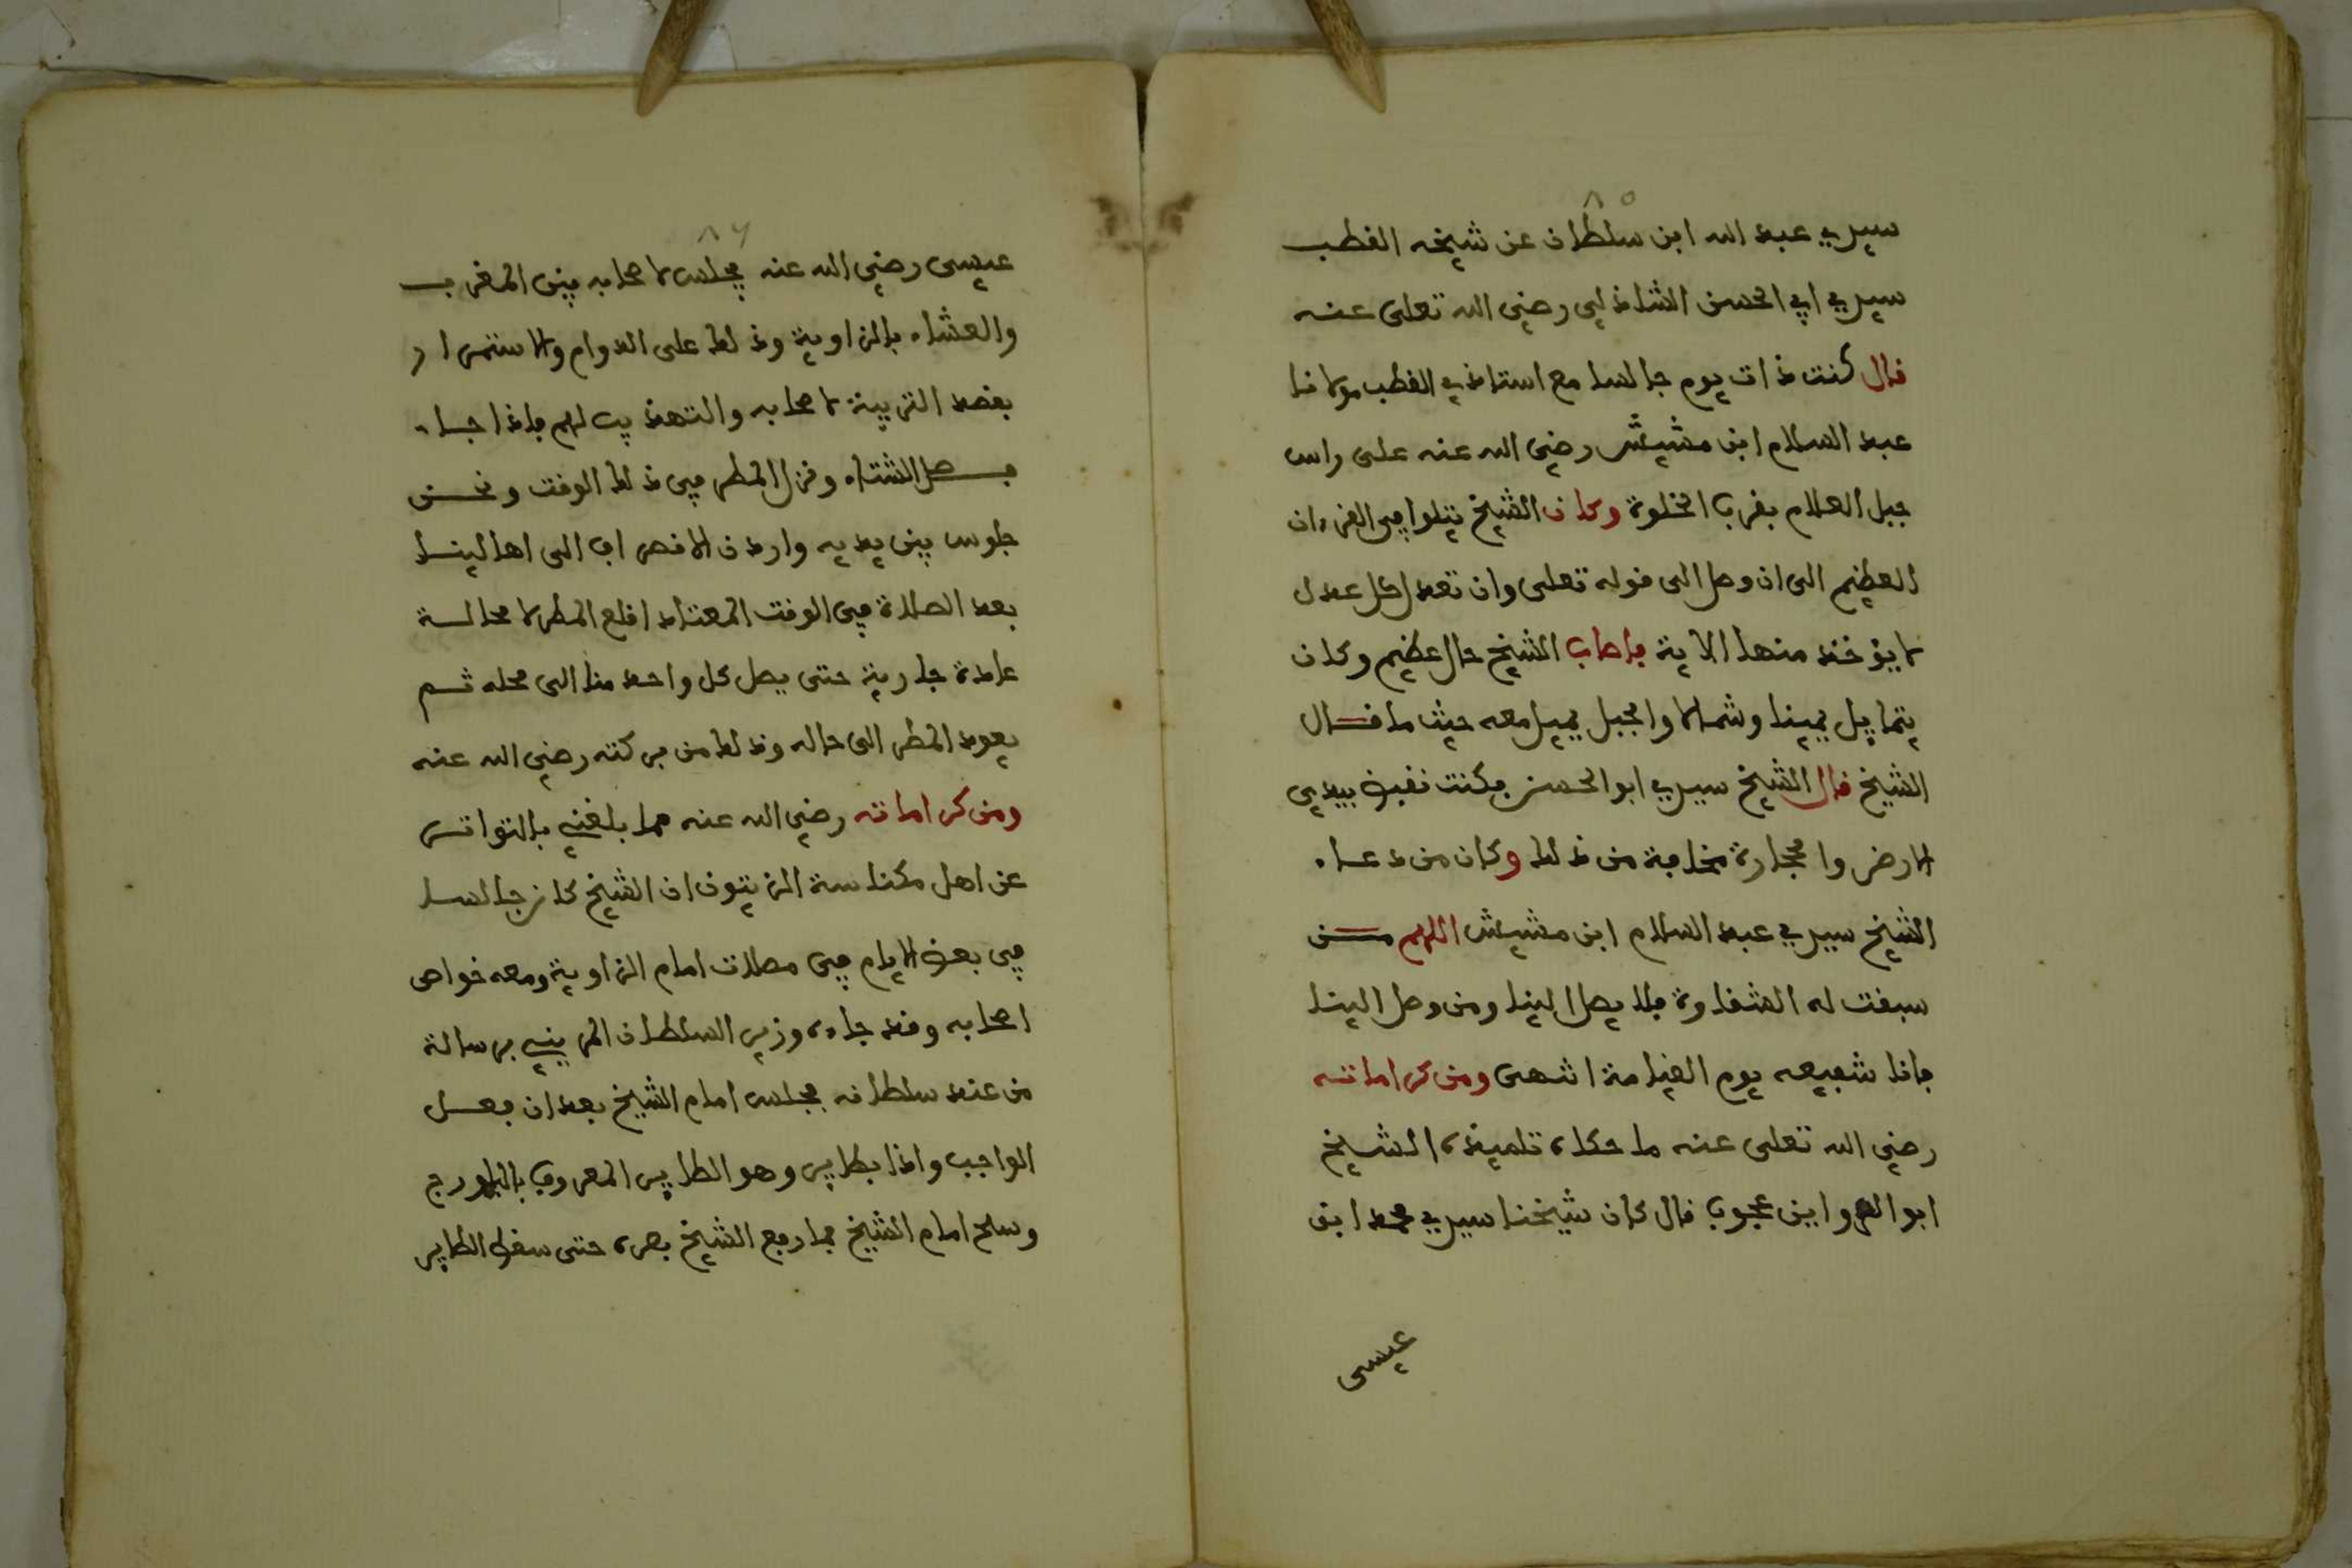 ٨٥
سيدي عبد الله ابن سلطان عن شيخه القطب
سيدي ابي الحسن الشاذلي رضي الله تعلى عنه
قال كنت ذات يوم جالسا مع استاذي القطب مولانا
عبد السلام ابن مشيش رضي الله عنه على راس
جبل العلام بقرب الخلوة وكان الشيخ يتلوا في القرءان
العظيم الى ان وصل الى قوله تعلى وان تعدل كل عدل
لا يؤخذ منها الاية فاصاب الشيخ حال عظيم وكان
يتمايل يمينا وشمالا والجبل يميل معه حيث ما قال
الشيخ قال الشيخ سيدي ابو الحسن فكنت نقبض بيدي
الارض والحجارة مخافة من ذلك وكان من دعاء
الشيخ سيدي عبد السلام ابن مشيش اللهم من
سبقت له الشقاوة فلا يصل الينا ومن وصل الينا
فانا شفيعه يوم القيامة انتهى ومن كراماته
رضي الله تعلى عنه ما حكاه تلميذه الشيخ
ابو الرواين محجوب قال كان شيخنا سيدي محمد ابن
عيسى
٨٦
عيسى رضي الله عنه يجلس لاصحابه بين المغرب
والعشاء بالزاوية وذلك على الدوام والاستمرار
بقصد التربية لاصحابه والتهذيب لهم فاذا جاء
فصل الشتاء ونزل المطر في ذلك الوقت ونحن
جلوس بين يديه واردن الانصراف الى اهالينا
بعد الصلاة في الوقت المعتاد اقلع المطر لا محالة
عادة جارية حتى يصل كل واحد منا الى محله ثم
يعود المطر الى حاله وذلك من بركته رضي الله عنه
ومن كراماته رضي الله عنه مما بلغني بالتواتر
عن اهل مكناسة الزيتون ان الشيخ كان جالسا
في بعض الايام في مصلات امام الزاوية ومعه خواص
اصحابه وقد جاءه وزير السلطان المريني برسالة
من عند سلطانه فجلس امام الشيخ بعد ان فعل
الواجب واذا بطاير وهو الطاير المعروف
وسلح امام الشيخ فما رفع الشيخ بصره حتى سقط الطاير